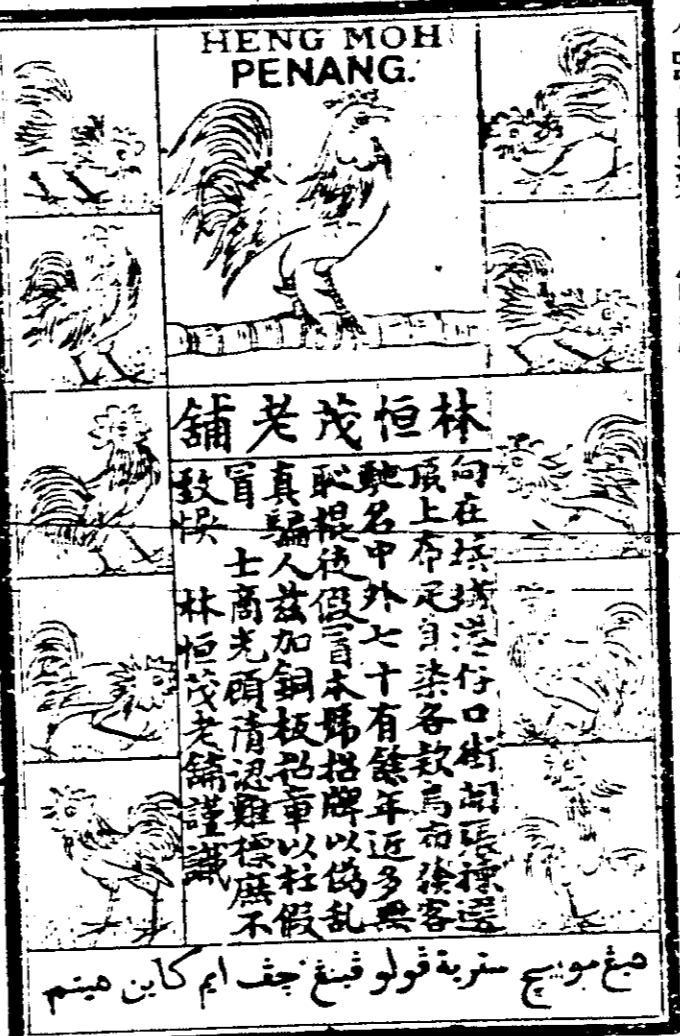 HENG MOH
PENANG.
林恒茂老舖
向在檳城港仔口街開張揀選
頂上布疋自染各款烏布發客
馳名中外七十有餘年近多無
恥棍徒假冒本號招牌以偽乱
真騙人茲加銅板記章以杜假
冒 士商光顧請認雞標庶不
致悮 林恒茂老舖謹識
هيڠ مو سترية ڤولو ڤينڠ چڤ ايم كاين هيتم